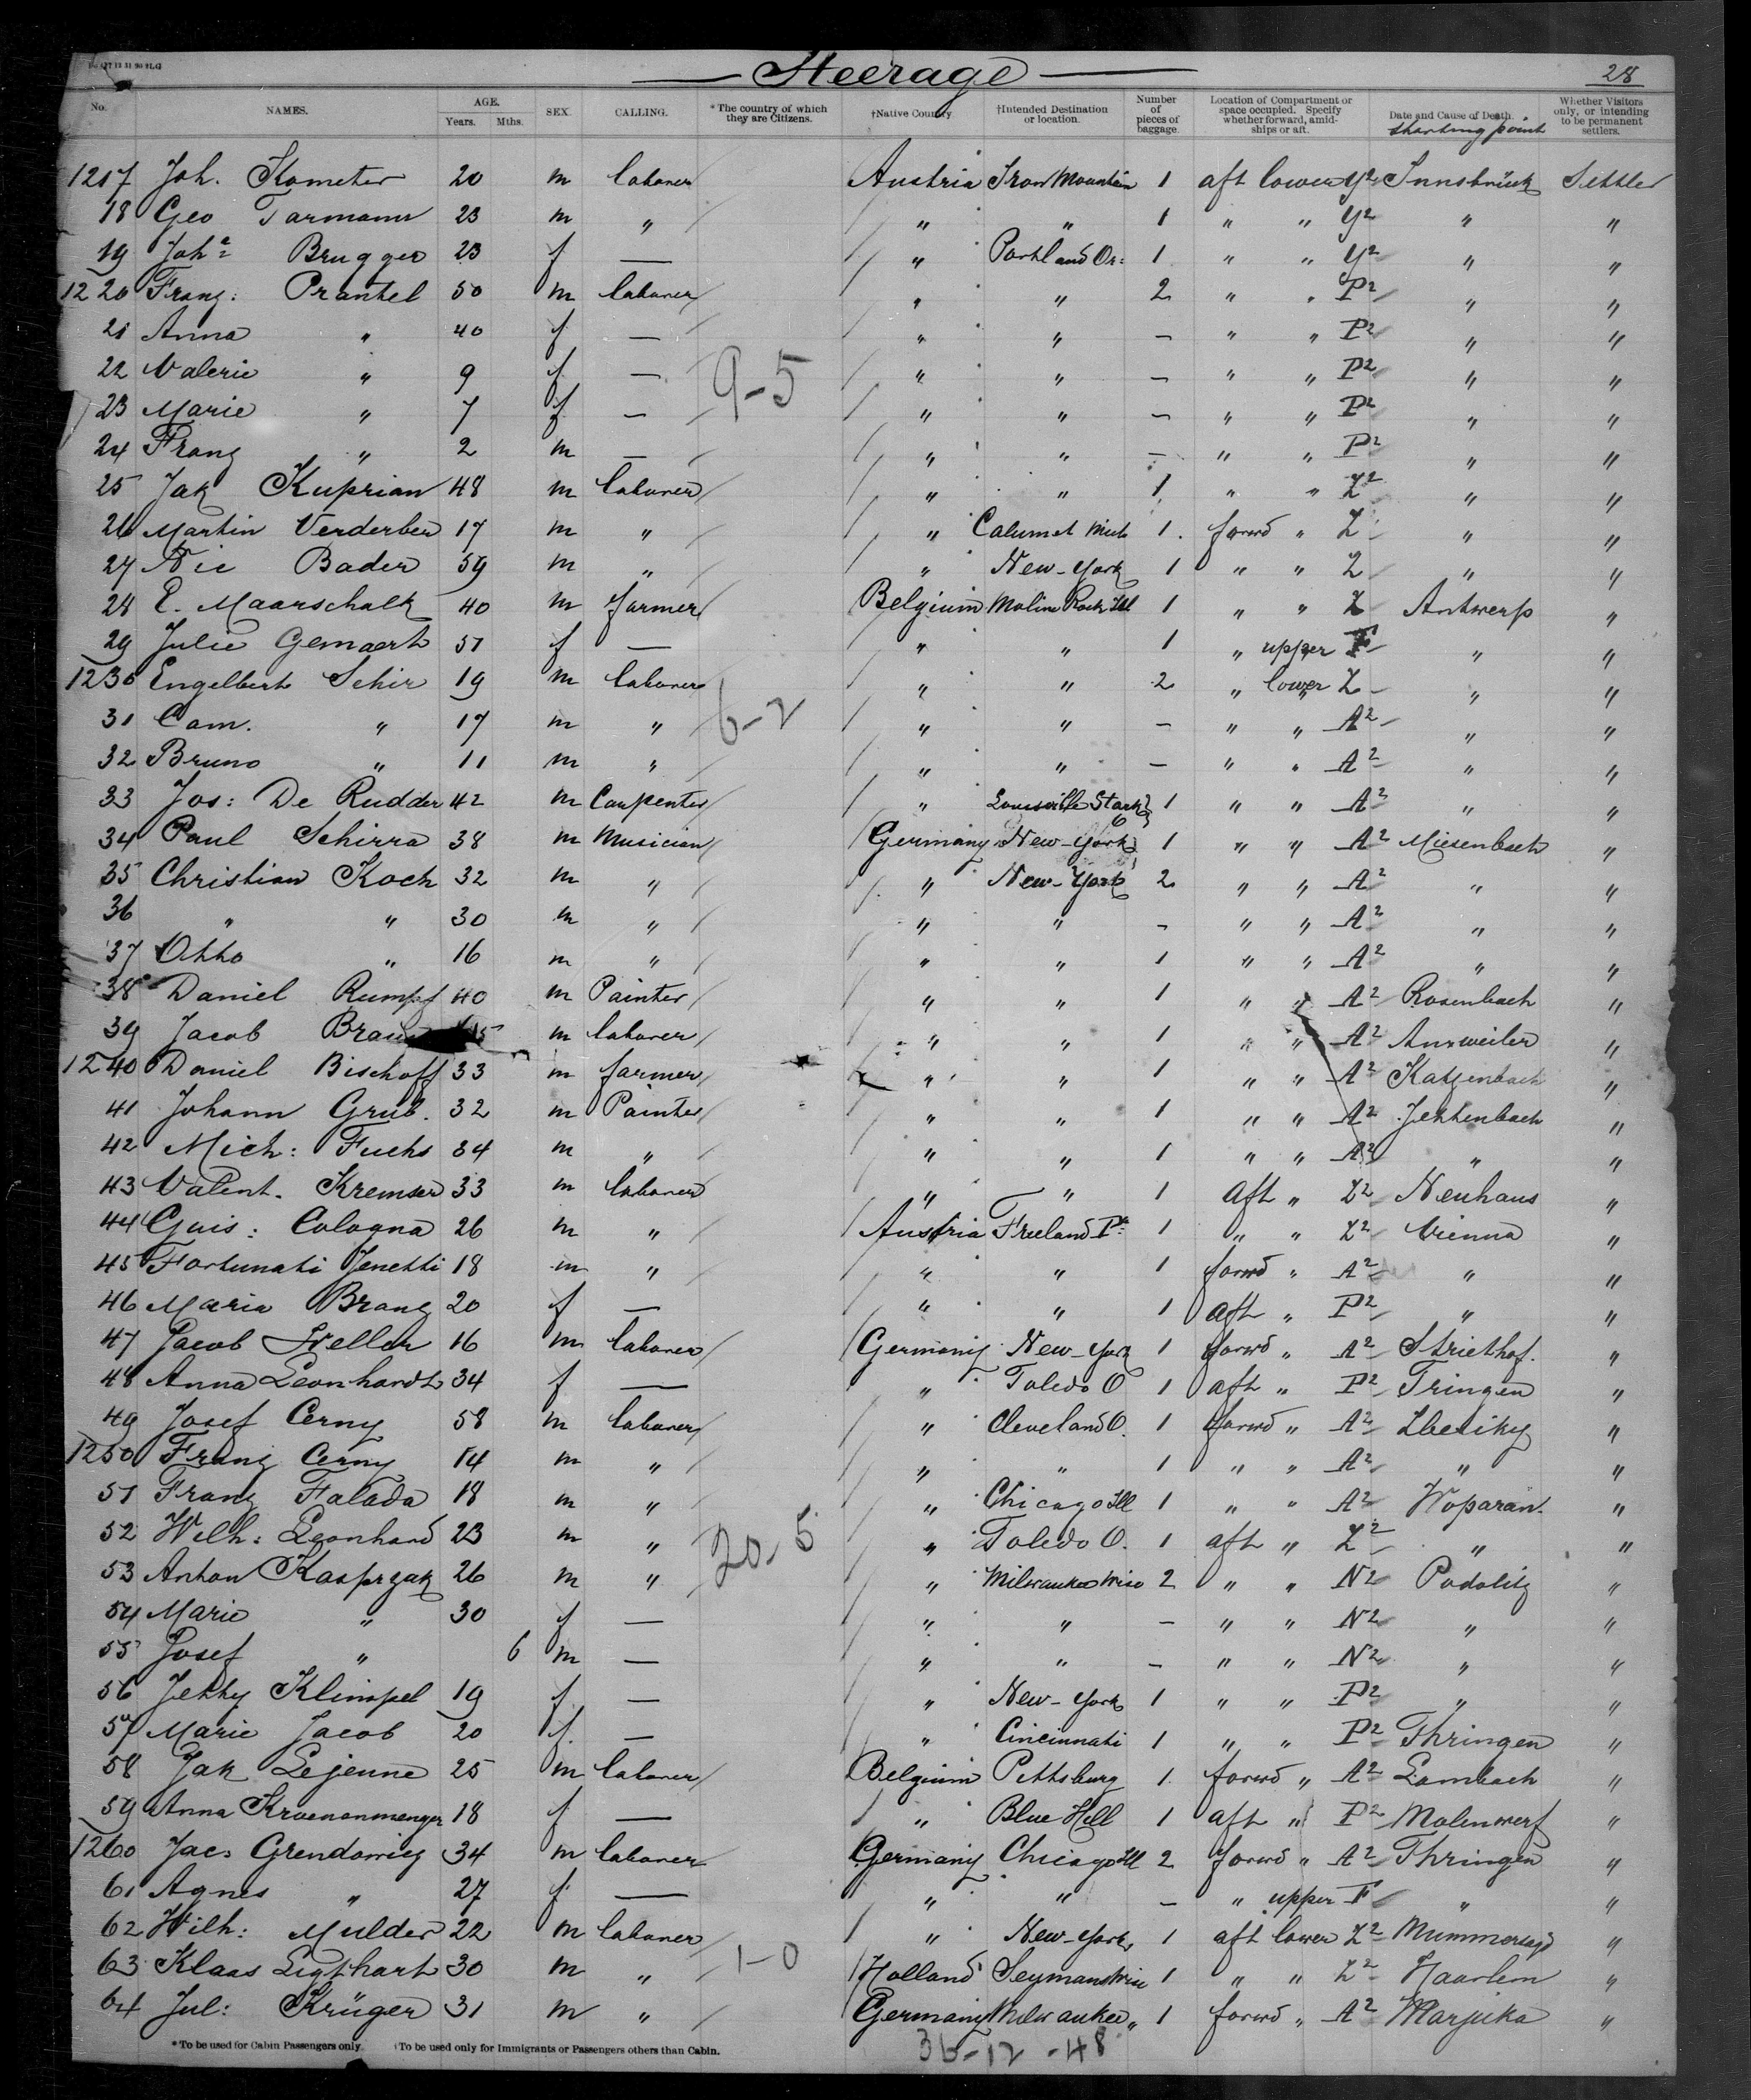 Steerage 28
No. NAMES. AGE. Years. Mths. SEX. CALLING. *The country of which they are Citizens. †Native Country. †Intended Destination or location. Number of pieces of baggage. Location of Compartment or space occupied. Specify whether forward, amidships or aft. Date and Cause of Death. starting point Whether Visitors only, or intending to be permanent settlers.
1217 Joh. Kometer 20 m laborer Austria Iron Mountain 1 aft lower Y2 Innsbrück Settler
18 Geo Tarmann 23 m " " " 1 " " Y2 " "
19 Joha Brugger 23 f — " Portland Or: 1 " " Y2 " "
1220 Franz: Prantel 50 m laborer " " 2 " " P2 " "
21 Anna " 40 f — " " — " " P2 " "
22 Valerie " 9 f — " " — " " P2 " "
23 Marie " 7 f — " " — " " P2 " "
9-5
24 Franz " 2 m — " " — " " P2 " "
25 Jak Kuprian 48 m laborer " " 1 " " Z2 " "
26 Martin Verderber 17 m " " Calumet Mich 1 forwd " Z " "
27 Nic Bader 59 m " " New-York 1 " " Z " "
28 E. Maarschalk 40 m farmer Belgium Moline Rock Ill 1 " " Z Antwerp "
29 Julie Gemaert 51 f — " " 1 " upper F " "
1230 Engelbert Schir 19 m laborer " " 2 " lower Z " "
31 Cam. " 17 m " 6-2 " " — " " A2 " "
32 Bruno " 11 m " " " — " " A2 " "
33 Jos: De Rudder 42 m Carpenter " Louisville Stark 1 " " A2 " "
34 Paul Schirra 38 m Musician Germany New-York 1 " " A2 Miesenbach "
35 Christian Koch 32 m " " New-York 2 " " A2 " "
36 " " 30 m " " " - " " A2 " "
37 Otto " 16 m " " " 1 " " A2 " "
38 Daniel Rumpf 40 m Painter " " 1 " " A2 Rosenbach "
39 Jacob m laborer " " 1 " " A2 Annweiler "
1240 Daniel Bischoff 33 m farmer " " 1 " " A2 Katzenbach "
41 Johann Grub. 32 m Painter " " 1 " " A2 Jettenbach "
42 Mich: Fuchs 34 m " " " 1 " " A2 " "
43 Valent. Kremser 33 m laborer " " 1 aft " Z2 Neuhaus "
44 Guis: Cologna 26 m " Austria Freeland Pa: 1 " " Z2 Vienna "
45 Fortunati Jenetti 18 m " " " 1 forwd " A2 " "
46 Maria Brang 20 f — " " 1 aft " P2 " "
47 Jacob Heller 16 m laborer Germany New-York 1 forwd " A2 Striethof. "
48 Anna Leonhardt 34 f — " Toledo O 1 aft " P2 Tringen "
49 Josef Cerny 58 m laborer " Cleveland O. 1 forwd " A2 "
1250 Franz Cerny 14 m " " " 1 " " A2 " "
51 Franz Falada 18 m " " Chicago Ill 1 " " A2 Woparan. "
52 Wilh: Leonhard 23 m " " Toledo O. 1 aft " Z2 " "
20-5
53 Anton Kasprzak 26 m " " Milwaukee Wisc 2 " " N2 Podolitz "
54 Marie " 30 f — " " — " " N2 " "
55 Josef " 6 m — " " — " " N2 " "
56 Jetty Klimpel 19 f — " New-York 1 " " P2 " "
57 Marie Jacob 20 f — " Cincinnati 1 " " P2 Thringen "
58 Jak Lejeune 25 m laborer Belgium Pittsburg 1 forwd " A2 Lambach "
59 Anna 18 f — " Blue Hill 1 aft " P2 Molenwerf "
1260 Jac: Grendowicz 34 m laborer Germany Chicago Ill 2 forwd " A2 Thringen "
61 Agnes " 27 f — " " — " upper F " "
62 Wilh: Mulder 22 m laborer " New-York 1 aft lower Z2 "
63 Klaas Ligthart 30 m " 1-0 Holland 1 " " Z2 Haarlem "
64 Jul: Krüger 31 m " Germany Milwaukee " 1 forwd " A2 Marjuka "
*To be used for Cabin Passengers only. †To be used only for Immigrants or Passengers others than Cabin.
36-12-48